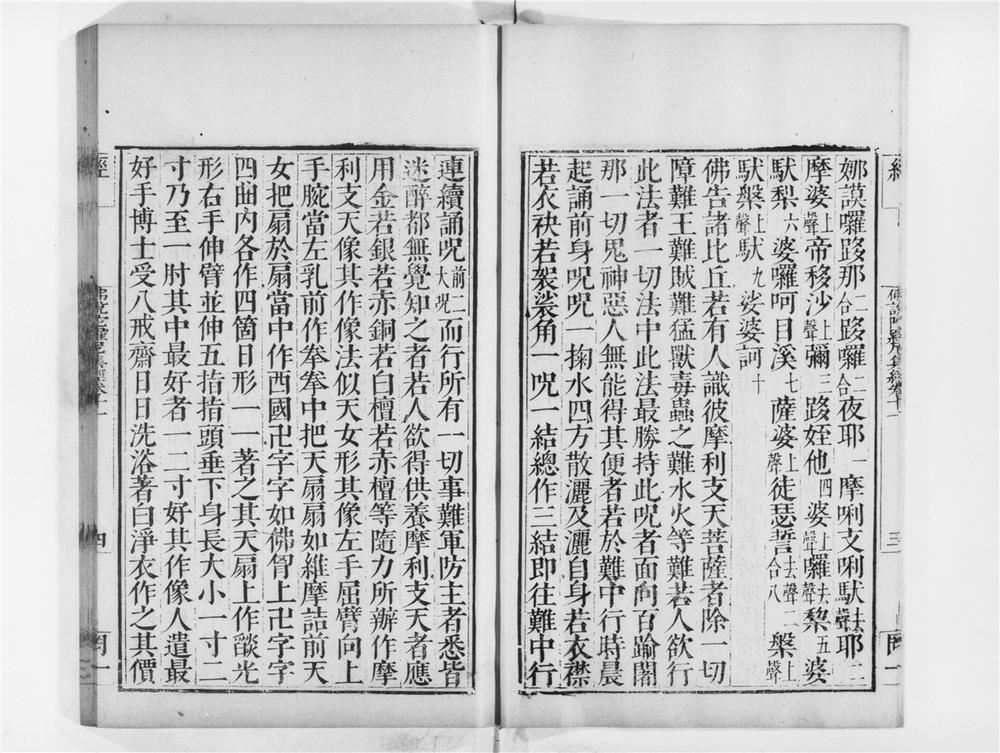 娜謨囉跢那二合跢囉二合夜耶一摩唎支唎馱去聲耶二
摩婆上聲帝移沙上聲彌三跢姪他四婆上聲囉去聲犂五婆
馱梨六婆囉呵目溪七薩婆上聲徒瑟誓去聲一合八槃上聲
馱槃上聲馱九娑婆訶十
佛告諸比丘若有人識彼摩利支天菩薩者除一切
障難王難賊難猛獸毒蟲之難水火等難若人欲行
此法者一切法中此法最勝持此呪者面向百踰闍
那一切鬼神惡人無能得其便者若於難中行時晨
起誦前身呪呪一掬水四方散灑及灑自身若衣襟
若衣袂若袈裟角一呪一結總作三結即往難中行
連續誦呪前二大呪而行所有一切事難軍防主者悉皆
迷醉都無覺知之者若人欲得供養摩利支天者應
用金若銀若赤銅若白檀若赤檀等隨力所辦作摩
利支天像其作像法似天女形其像左手屈臂向上
手腕當左乳前作拳拳中把天扇扇如維摩詰前天
女把扇於扇當中作西國卍字字如佛胷上卍字字
四曲內各作四箇日形一一著之其天扇上作㷔光
形右手伸臂並伸五指指頭垂下身長大小一寸二
寸乃至一肘其中最好者一二寸好其作像人遣最
好手博士受八戒齋日日洗浴著白淨衣作之其價
經
三
四